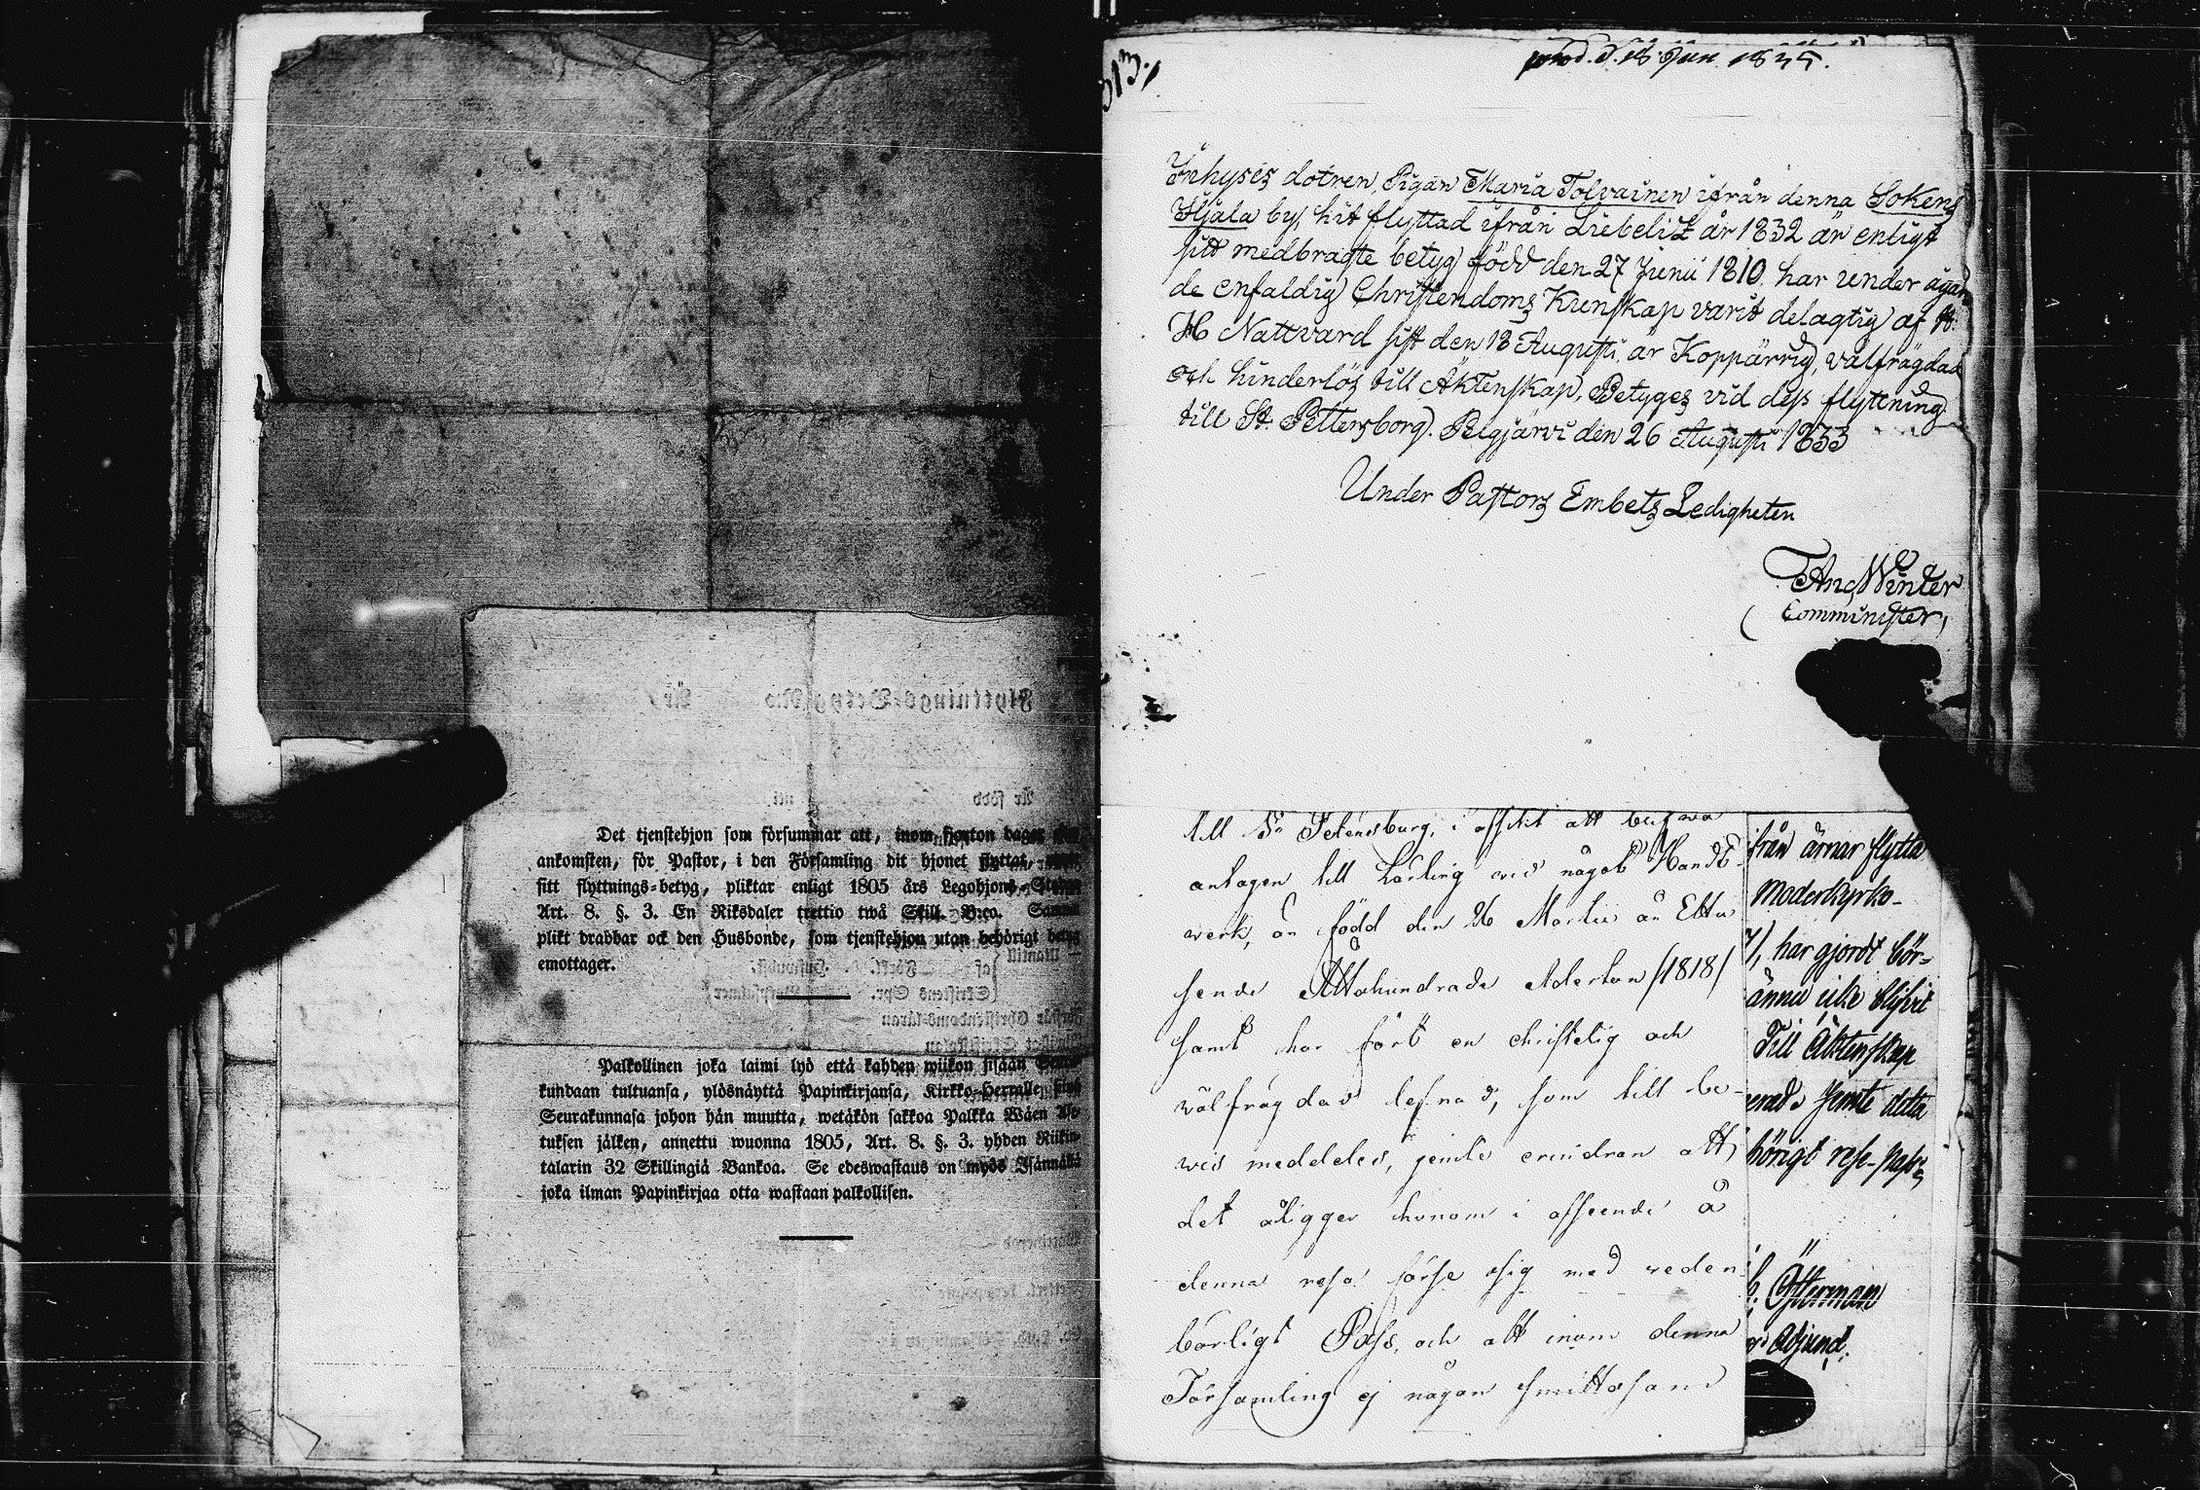 Det tjenstehjon som försummar att, inom fjorton dagar
ankomsten, för Pastor, i den Församling dit hjonet flyttat,
sitt flyttnings-betyg, pliktar enligt 1805 års Legohjons-
Art. 8. §. 3. En Riksdaler trettio twå Skill. B:co.
plikt drabbar ock den Husbonde, som tjenstehjon utan behörigt
emottager.
Palkollinen joka laimi lyö että kahden wiikon sisään
kundaan tultuansa, ylösnäyttä Papinkirjansa, Kirkko-Herralle,
Seurakunnasa johon hän muutta, wetäkön sakkoa Palkka Wäen
tuksen jälken, annettu wuonna 1805, Art. 8. §. 3. yhden Riikin-
talarin 32 Skillingiä Bankoa. Se edeswastaus on myös Isännällä
joka ilman Papinkirjaa otta wastaan palkollisen.
313.
prod. d. 18 Jun. 1835.
Inhyses dotren, Pigan Maria Tolvainen ifrån denna Sokens
by, hit flyttad ifrån Liebelitz år 1832 är enligt
sitt medbragte betyg född den 27 Junii 1810. har under ägan
de enfaldig Christendoms Kunskap varit delagtig af
H Nattvard sist den 18 Augusti, är Koppärrig, välfrägdad
och hinderlös till Äktenskap, Betyges vid dess flyttning
till St. Pettersborg. Pelgjärvi den 26 Augusti 1833
Under Pastors Embets Ledigheten
And Winter
Comminister,
till St Petersburg, i afsikt att blifva
antagen till Lärling wid något Handt-
werk, är född den 26 Martii år Ettu
sende Ottahundrade Aderton /1818/
samt har fört en christelig och
wälfrägdad lefnad, som till be-
wis meddeles, jemte erindran att
det åligger honom i afseende å
denna resa förse sig med weder-
börligt Pass, och att inom denna
Församling ej någon smittosam
från ärnar flytta
Moderkyrko-
7/, har gjordt bör-
ännu icke blifvit
Till Äktenskap
erad. Jemte detta
hörigt rese-pass
Österman
Adjunct.